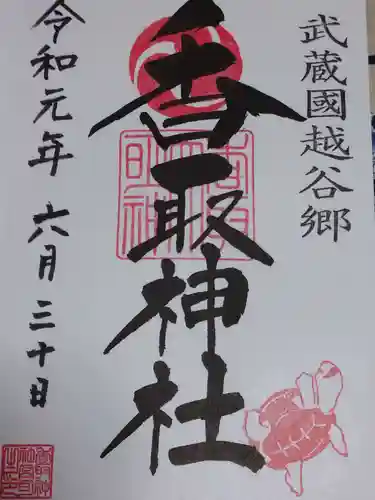 武蔵國越谷郷
香取神社
令和元年 六月三十日